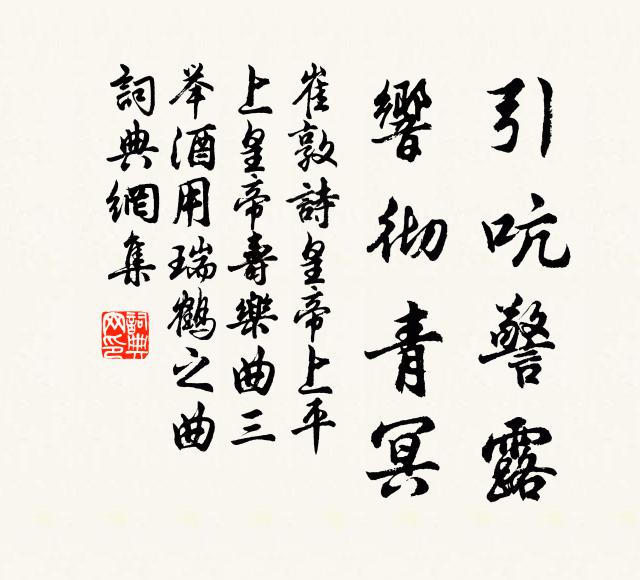 引吭警露
響彻青冥
崔敦詩皇帝上平
上皇帝壽樂曲三
举酒用瑞鶴之曲
詞典網集
詞典网印